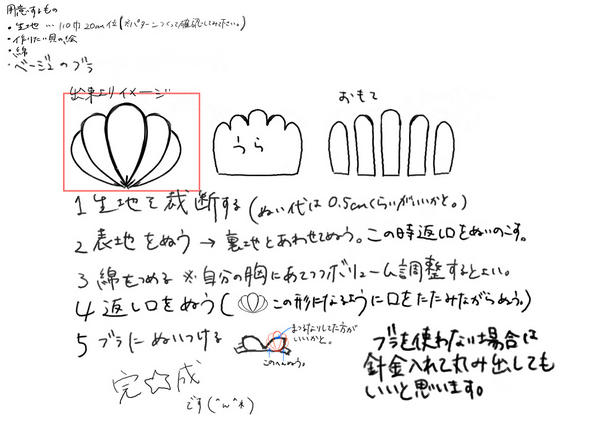 用意するもの
・生地 … 110巾 20cm位(※パターンつくって確認してみて下さい。)
・作りたい貝の絵
・綿
・ベージュのブラ
出来上りイメージ
うら
おもて
1 生地を裁断する(ぬい代は0.5cmくらいがいいかと。)
2 表地をぬう → 裏地とあわせてぬう。この時返し口をぬいのこす。
3 綿をつめる ※自分の胸にあてつつボリューム調整するとよい。
4 返し口をぬう( この形になるように口をたたみながらぬう。)
5 ブラにぬいつける
まつりなりしてた方が
いいかと。
このへんぬう。
完☆成
です(^ω^)
ブラを使わない場合は
針金入れて丸み出しても
いいと思います。